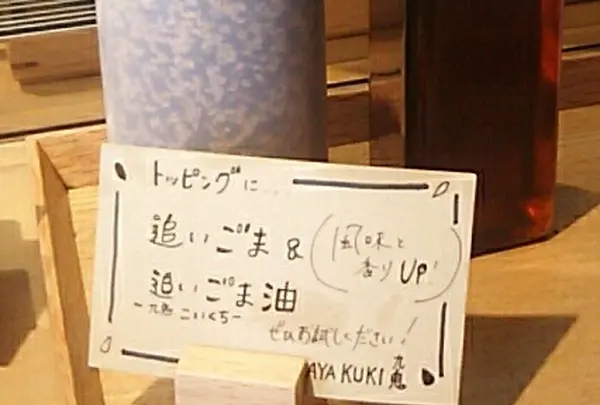 トッピングに...
追いごま &
(風味と
香りUP!)
追いごま油
-九鬼 こいくち-
ぜひお試しください!
AYA KUKI 九鬼